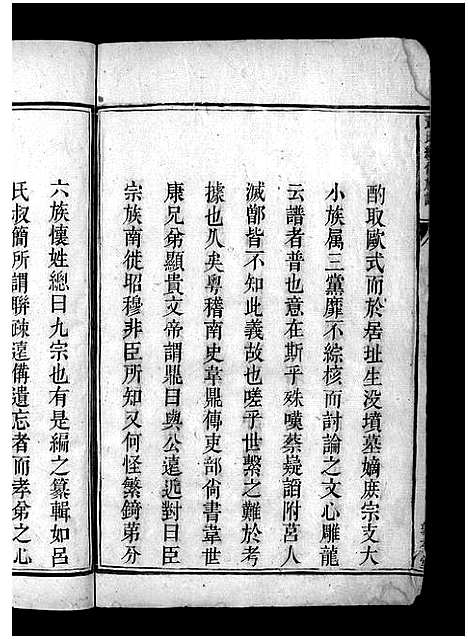 酌取歐式而於居址生没墳墓嫡庶宗支大
小族属三黨靡不綜核而討論之文心雕龍
云譜者普也意在斯乎殊嘆蔡嶷謟附莒人
滅鄫皆不知此義故也嗟乎世繫之難於考
據也久矣粤稽南史韋鼎傳吏部尙書韋世
康兄弟顯貴文帝謂鼎曰與公遠近對曰臣
宗族南徙昭穆非臣所知又何怪繁錡苐分
六族懷姓總曰九宗也有是編之纂輯如呂
氏叔簡所謂聯疎遠備遺忘者而孝弟之心